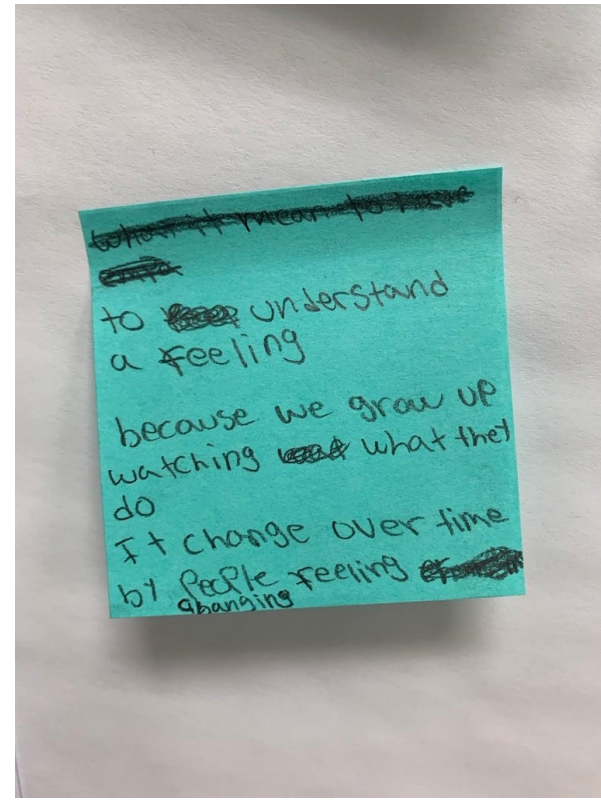 what it mean to have
to understand
a feeling
because we grow up
watching what they
do
It change over time
by people feeling
changing